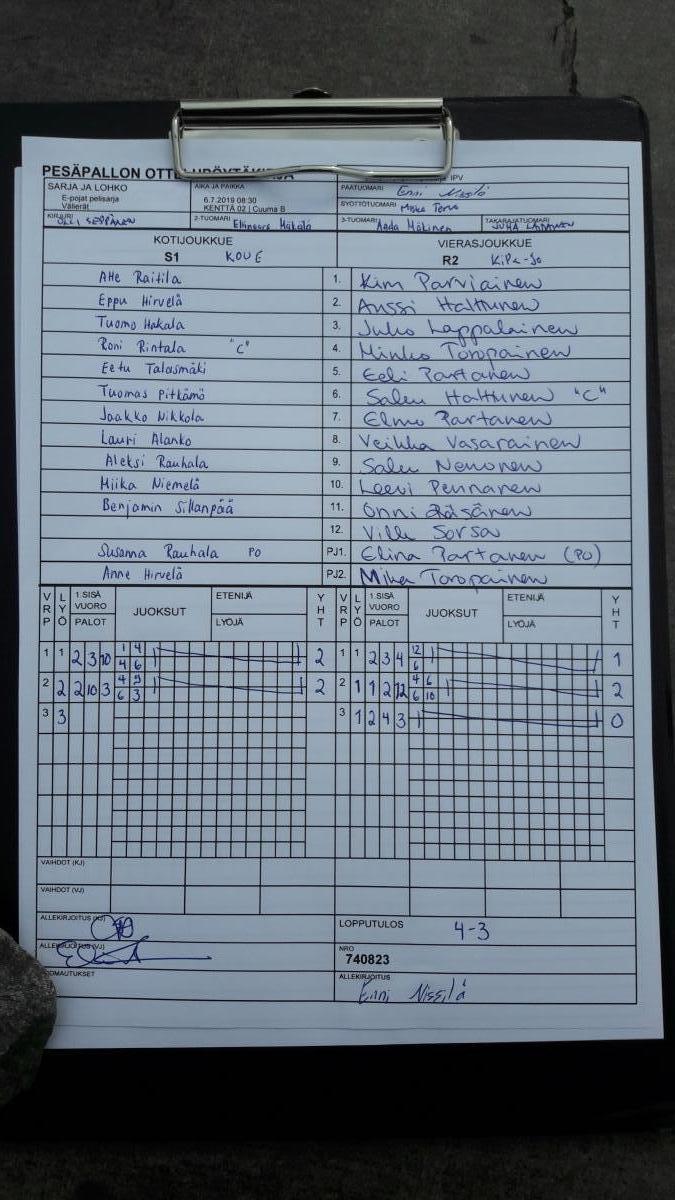 PESÄPALLON
SARJA JA LOHKO
E-pojat pelisarja
Välierät
AIKA JA PAIKKA
6.7.2019 08:30
KENTTÄ 02 | Cuuma B
IPV
PÄÄTUOMARI Enni Nissilä
SYÖTTÖTUOMARI
KIRJURI OLLI SEPPÄNEN
2-TUOMARI Mäkälä
3-TUOMARI Aada Mäkinen
TAKARAJATUOMARI JUHA
KOTIJOUKKUE
S1 KOUE
VIERASJOUKKUE
R2 KiPa-Jo
Atte Raitila 1. Kim Parviainen
Eppu Hirvelä 2. Anssi Halttunen
Tuomo Hakala 3. Juho Lappalainen
Roni Rintala "C" 4. Minko Toropainen
Eetu Talasmäki 5. Eeli Partanen
Tuomas Pitkämö 6. Saku Halttunen "C"
Jaakko Nikkola 7. Elmo Partanen
Lauri Alanko 8. Veikka Vasarainen
Aleksi Rauhala 9. Saku Nenonen
Miika Niemelä 10. Leevi Pennanen
Benjamin Sillanpää 11. Onni Räsänen
12. Ville Sorsa
Susanna Rauhala PO PJ1. Elina Partanen (PO)
Anne Hirvelä PJ2. Mika Toropainen
VRP LYÖ 1.SISÄ VUORO PALOT JUOKSUT ETENIJÄ LYÖJÄ YHT VRP LYÖ 1.SISÄ VUORO PALOT JUOKSUT ETENIJÄ LYÖJÄ YHT
1 1 2 3 10 1 4 2 1 1 2 3 4 12 1
4 6 6
2 2 2 10 3 4 9 2 2 1 1 2 12 4 6 2
6 3 6 10
3 3 3 1 2 4 3 0
VAIHDOT (KJ)
VAIHDOT (VJ)
ALLEKIRJOITUS (KJ)
LOPPUTULOS 4-3
ALLEKIRJOITUS (VJ)
NRO
740823
HUOMAUTUKSET
ALLEKIRJOITUS
Enni Nissilä